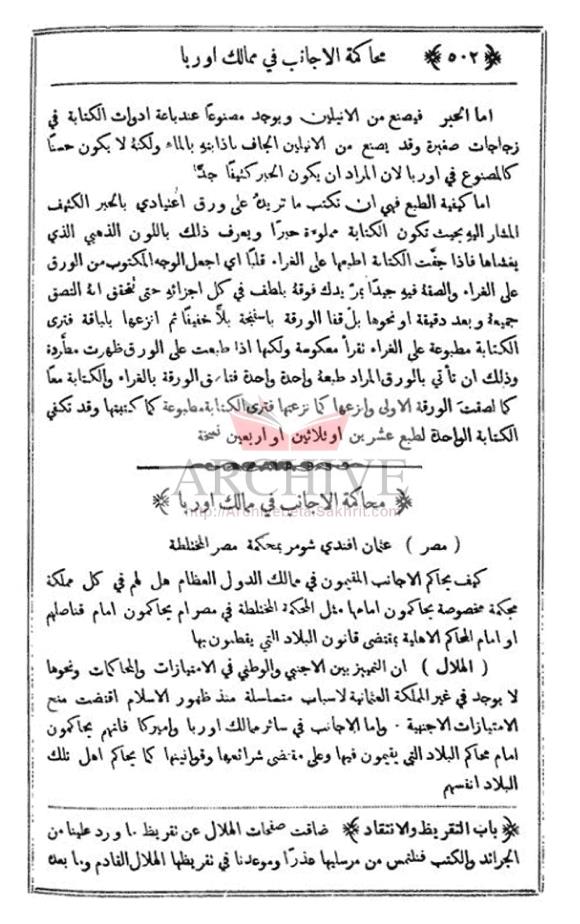 ﴿٥٠٢﴾ محاكمة الاجانب في ممالك اوربا
اما الحبر فيصنع من الانيلين ويوجد مصنوعًا عند باعة ادوات الكتابة في
زجاجات صغيرة وقد يصنع من الانيلين الجاف باذابتهِ بالماء ولكنهُ لا يكون حسنًا
كالمصنوع في اوربا لان المراد ان يكون الحبر كثيفًا جدًّا
اما كيفية الطبع فهي ان تكتب ما تريدهُ على ورق اعنيادي بالحبر الكثيف
المشار اليهِ بحيث تكون الكتابة مملوءة حبرًا ويعرف ذلك باللون الذهبي الذي
يغشاها فاذا جفَّت الكتابة اطبعها على الغراء قلبًا اي اجعل الوجه المكتوب من الورق
على الغراء والصقهُ فيهِ جيدًا بمرّ يدك فوقهُ بلطف في كل اجزائهِ حتى تتحقق انهُ التصق
جميعهُ وبعد دقيقة او نحوها بلّ قفا الورقة باسفنجة بلاًّ خفيفًا ثم انزعها بلباقة فترى
الكتابة مطبوعة على الغراء تقرأ معكوسة ولكنها اذا طبعت على الورق ظهرت مطَّردة
وذلك ان تأتي بالورق المراد طبعهُ واحدة واحدة فتلصق الورقة بالغراء والكتابة معًا
كما لصقت الورقة الاولى وانزعها كما نزعتها فترى الكتابة مطبوعة كما كتبتها وقد تكفي
الكتابة الواحدة لطبع عشرين او ثلاثين او اربعين نسخة
ARCHIVE
﴿ محاكمة الاجانب في ممالك اوربا ﴾
http://Archivebeta.Sakhrit.com
( مصر ) عثمان افندي شومر بمحكمة مصر المختلطة
كيف يحاكم الاجانب المقيمون في ممالك الدول العظام هل لهم في كل مملكة
محكمة مخصوصة يحاكمون امامها مثل المحكمة المختلطة في مصر ام يحاكمون امام قناصلهم
او امام المحاكم الاهلية بمقتضى قانون البلاد التي يقطنون بها
( الهلال ) ان التمييز بين الاجنبي والوطني في الامتيازات والمحاكمات ونحوها
لا يوجد في غير المملكة العثمانية لاسباب متسلسلة منذ ظهور الاسلام اقتضت منح
الامتيازات الاجنبية . واما الاجانب في سائر ممالك اوربا واميركا فانهم يحاكمون
امام محاكم البلاد التي يقيمون فيها وعلى مقتضى شرائعها وقوانينها كما يحاكم اهل تلك
البلاد انفسهم
﴿ باب التقريظ والانتقاد ﴾ ضاقت صفحات الهلال عن تقريظ ما ورد علينا من
الجرائد والكتب فنلتمس من مرسليها عذرًا وموعدنا في تقريظها الهلال القادم وما بعدهُ